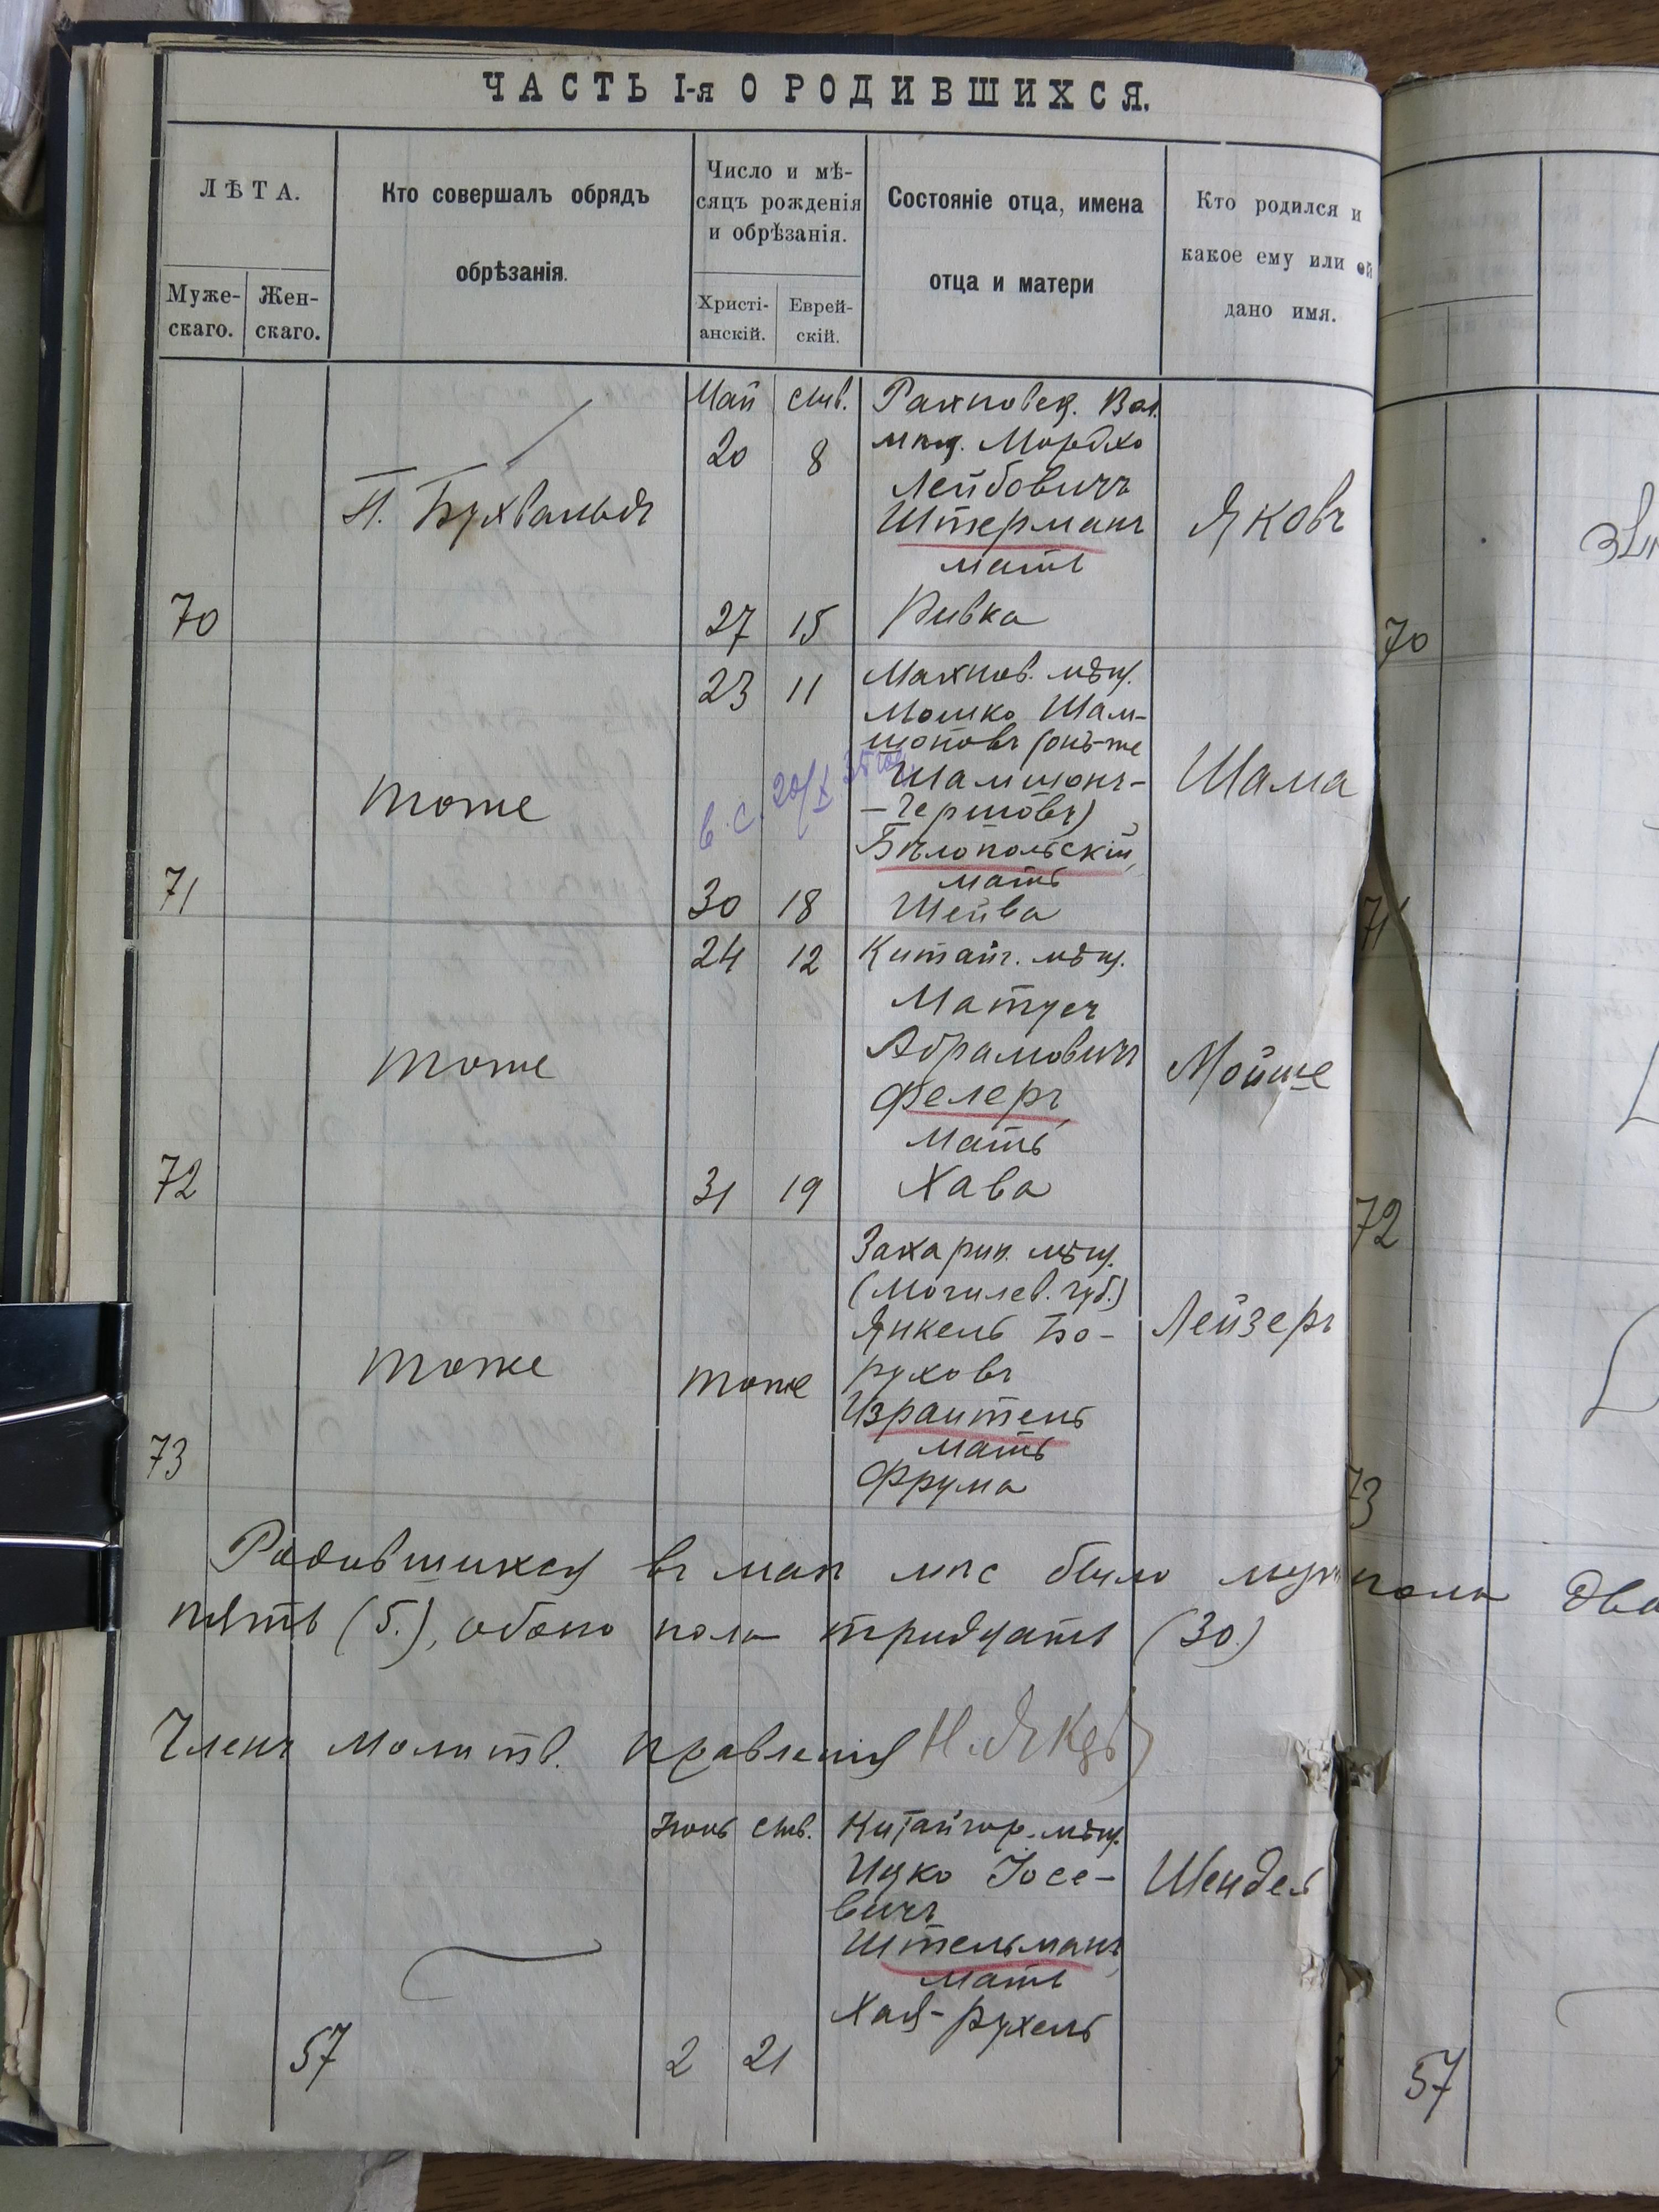 ЧАСТЬ I-я О РОДИВШИХСЯ.
ЛѢТА.
Муже-
скаго.
Жен-
скаго.
Кто совершалъ обрядъ
обрѣзанія.
Число и мѣ-
сяцъ рожденія
и обрѣзанія.
Христі-
анскій.
Еврей-
скій.
Состояніе отца, имена
отца и матери
Кто родился и
какое ему или ей
дано имя.
Май
сив.
20
8
мѣщ. Мордхо
Лейбовичъ
Штерманъ
мать
Ривка
Яковъ
70
27
15
70
23
11
Махнов. мѣщ.
Мошко Шам-
шоновъ (онъ-же
Шамшонъ-
-Гершовъ)
Бѣлопольскій,
мать
Шейва
тоже
в. с. 20/X
Шама
71
30
18
71
24
12
Китайг. мѣщ.
Матусъ
Абрамовичъ
Фелеръ,
мать
Хава
тоже
Мойше
72
31
19
72
Захарин. мѣщ.
(Могилев. губ.)
Янкель Бо-
руховъ
мать
Фрума
тоже
тоже
Лейзеръ
73
73
Родившихся въ маѣ мѣс было муж пола два
пять (5.), обоего пола тридцать (30.)
Членъ Молитв. правленія
Іюнь
сив.
Китайгор. мѣщ.
Ицко Іосе-
вичъ
Штельманъ,
мать
Хая-Рухель
Шендель
57
2
21
57